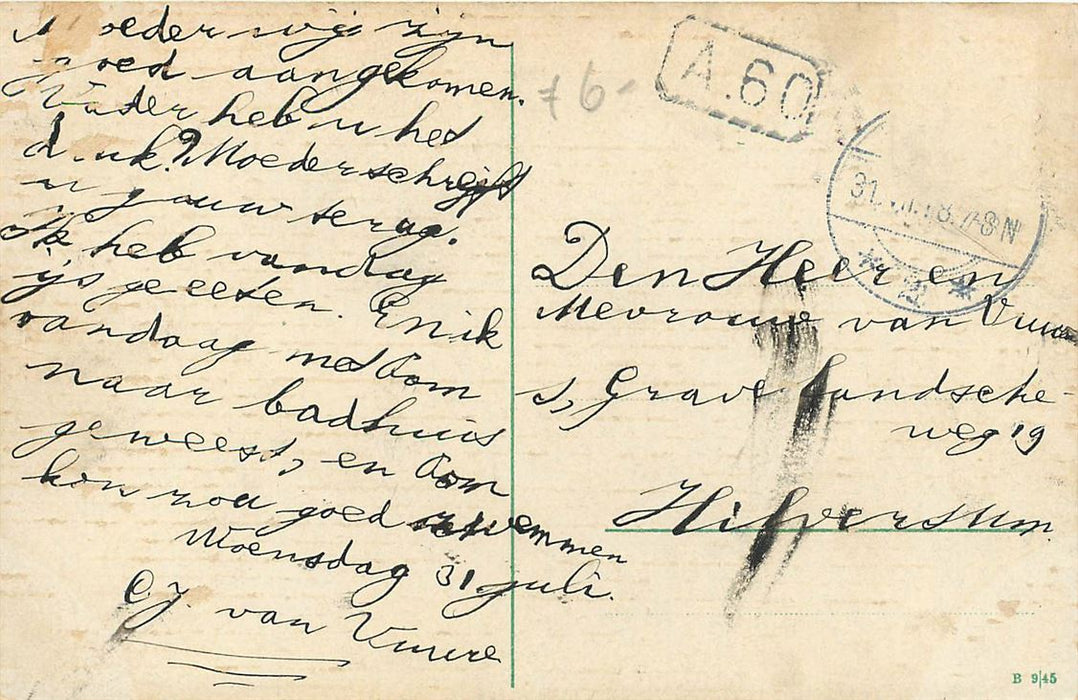 Moeder wij zijn
goed aangekomen.
Vader heb u het
druk? Moeder schrijft
u gauw terug.
Ik heb vandaag
ijs gegeten. En ik
vandaag met Oom
naar badhuis
geweest, en Oom
kon zou goed zwemmen
Woensdag 31 juli.
C.J. van Vuure
± 6-
A.60
31. 7-8N
Den Heer en
Mevrouw van Vuure
s, Gravelandsche-
weg 19
Hilversum.
B 9|45